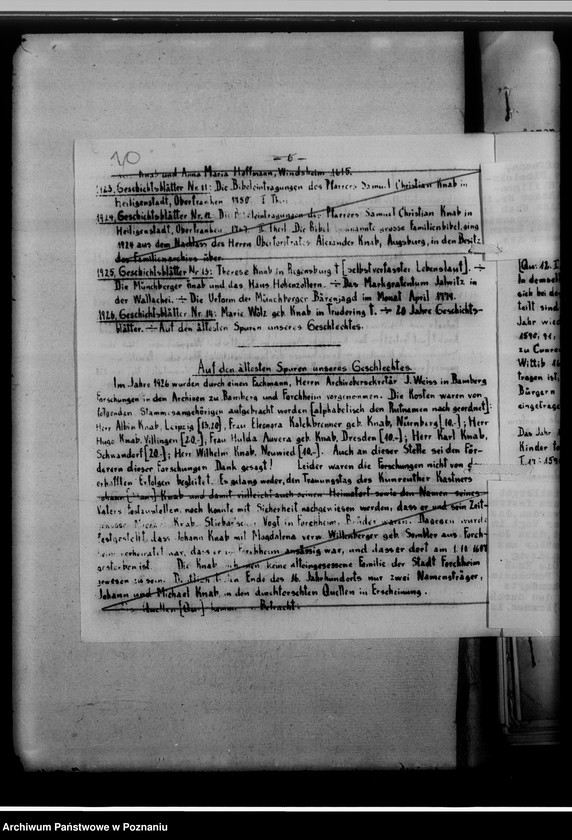 10
- 6 -
Knab und Anna Maria Hoffmann, Windsheim 1615.
1923. Geschichtsblätter Nr. 11: Die Bibeleintragungen des Pfarrers Samuel Christian Knab in
Heiligenstadt, Oberfranken 1750. I Theil
1924. Geschichtsblätter Nr. 12. Die Bibeleintragungen des Pfarrers Samuel Christian Knab in
Heiligenstadt, Oberfranken II Theil Die Bibel genannte grosse Familienbibel, ging
1924 aus dem Nachlass des Herrn Oberforstrates Alexander Knab, Augsburg, in den Besitz
des Familienarchivs über.
1925. Geschichtsblätter Nr. 13: Therese Knab in Regensburg † [selbstverfasster Lebenslauf]. ÷
Die Münchberger Knab und das Haus Hohenzollern. ÷ Das Markgrafentum Jalwitz in
der Wallachei. ÷ Die Urform der Münchberger Bärenjagd im Monat April
1926. Geschichtsblätter Nr. 14: Marie Wölz geb Knab in Trudering †. ÷ 20 Jahre Geschichts-
blätter. ÷ Auf den ältesten Spuren unseres Geschlechtes.
Auf den ältesten Spuren unseres Geschlechtes.
Im Jahre 1926 wurden durch einen Fachmann, Herrn Archivobersekretär J. Weiss in Bamberg
Forschungen in den Archiven zu Bamberg und Forchheim vorgenommen. Die Kosten waren von
folgenden Stammesangehörigen aufgebracht worden [alphabetisch den Rufnamen nach geordnet]:
Herr Albin Knab, Leipzig [13,20], Frau Eleonora Kalckbrenner geb. Knab, Nürnberg [10.-]; Herr
Hugo Knab, Villingen [20.-], Frau Hulda Auvera geb Knab, Dresden [10.-]; Herr Karl Knab,
Schwandorf [20.-]; Herr Wilhelm Knab, Neuwied [10.-]. Auch an dieser Stelle sei den För-
derern dieser Forschungen Dank gesagt! Leider waren die Forschungen nicht von
erhofften Erfolgen begleitet. Es gelang weder, den Trauungstag des Kunreuther Kastners
Johann [Hans] Knab und damit vielleicht auch seinen Heimatort sowie den Namen seines
Vaters festzustellen, noch konnte mit Sicherheit nachgewiesen werden, dass er und sein Zeit-
genosse Michael Knab, Vogt in Forchheim, Brüder waren. Dagegen wurde
festgestellt, dass Johann Knab mit Magdalena verw. Willenberger geb Sombler aus Forch-
heim verheiratet war, dass er in Forchheim ansässig war, und dass er dort am 1.10 1607
gestorben ist. Die Knab keine alteingesessene Familie der Stadt Forchheim
gewesen zu sein. Ende des 16. Jahrhunderts nur zwei Namensträger,
Johann und Michael Knab, in den durchforschten Quellen in Erscheinung.
Quellen [Qu.] Betracht.
[Qu: 12. I
In demsel
sich bei de
teilt sind
Jahr wied
1590, 91,
zu Cunre
Wittib
tragen ist
Bürgern
eingetrage
Das Jahr
Kinder
Archiwum Państwowe w Poznaniu